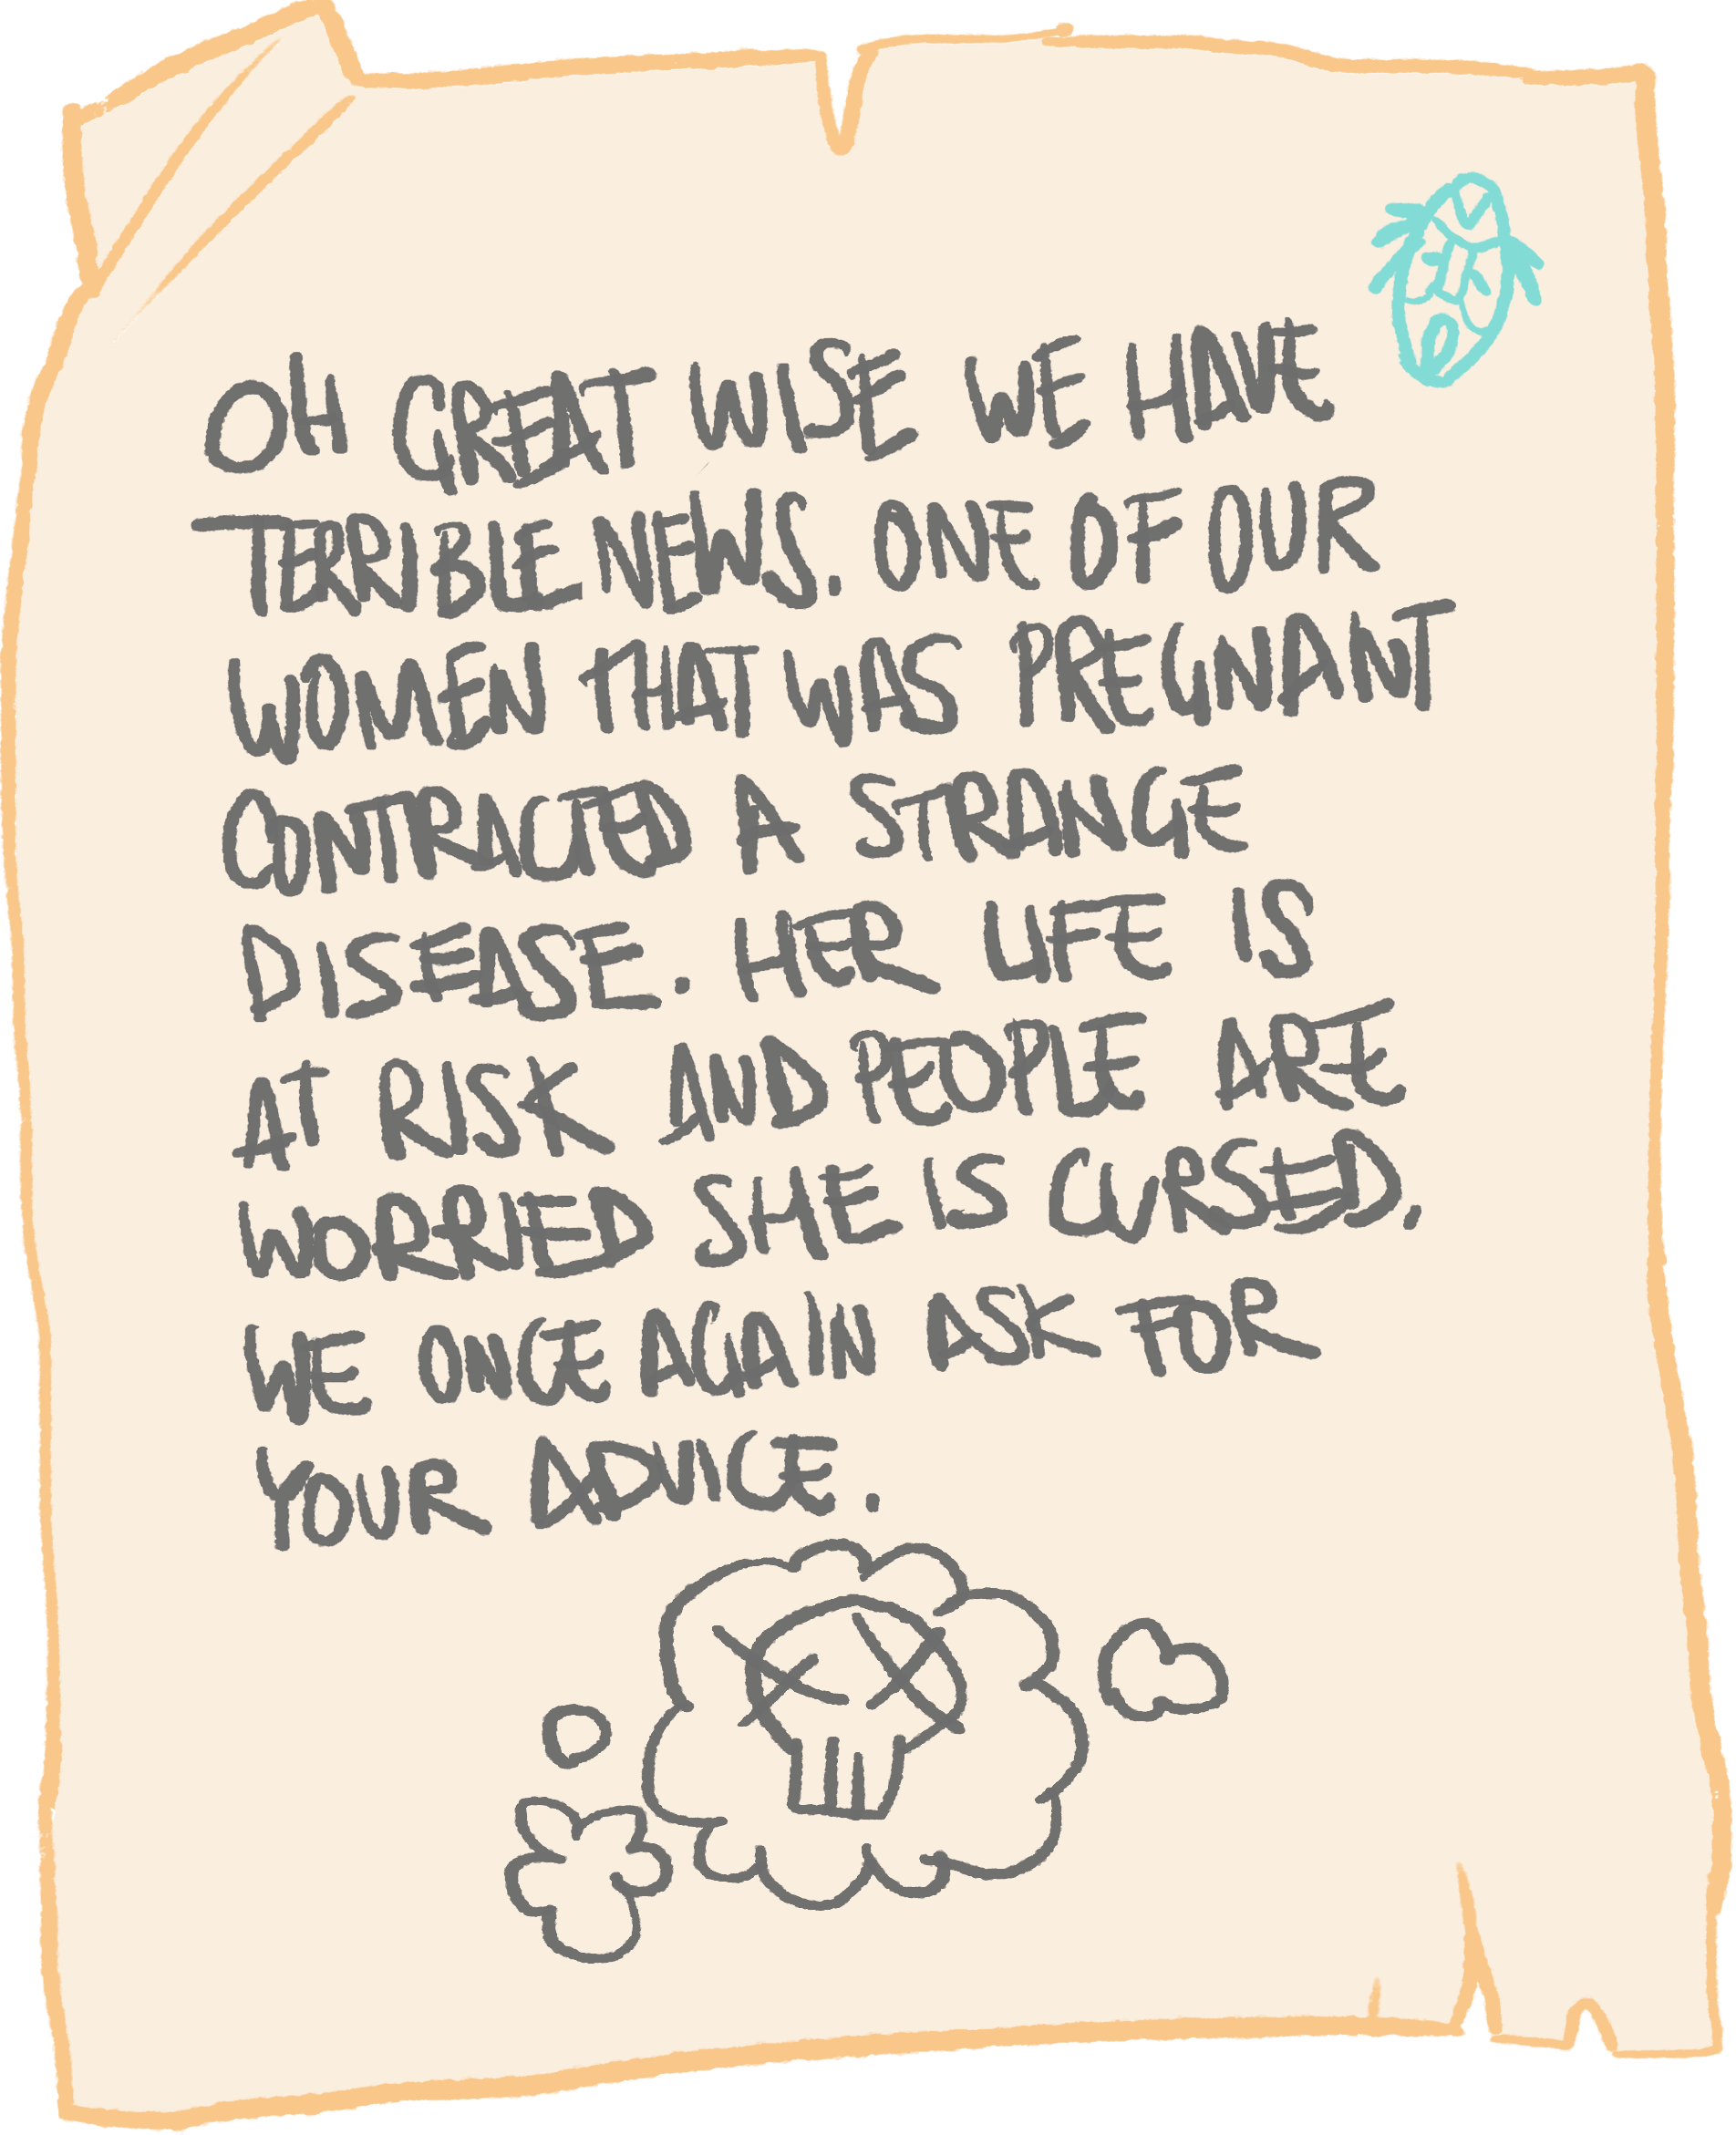 OH GREAT WISE WE HAVE
TERRIBLE NEWS. ONE OF OUR
WOMEN THAT WAS PREGNANT
CONTRACTED A STRANGE
DISEASE. HER LIFE IS
AT RISK AND PEOPLE ARE
WORRIED SHE IS CURSED.
WE ONCE AGAIN ASK FOR
YOUR ADVICE.